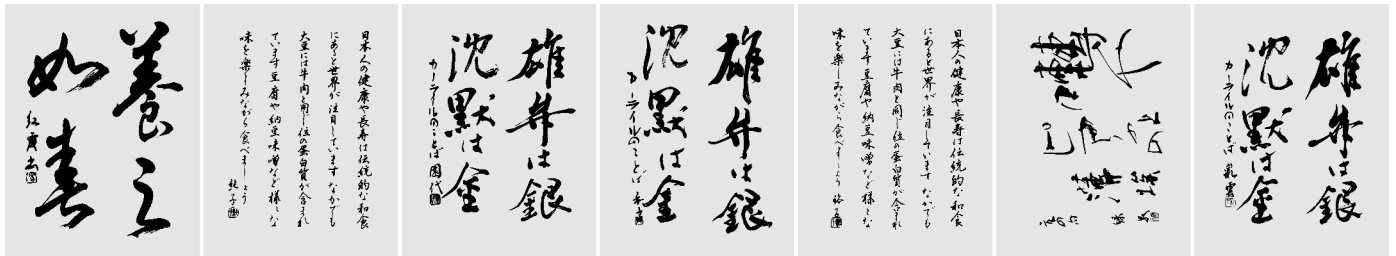 養之
如春
日本人の健康や長寿は伝統的な和食
にあると世界が注目しています なかでも
大豆には牛肉と同じ位の蛋白質が含まれ
ています 豆腐や納豆味噌など様々な
味を楽しみながら食べましょう
雄弁は銀
沈黙は金
カーライルのことば
雄弁は銀
沈黙は金
カーライルのことば
日本人の健康や長寿は伝統的な和食
にあると世界が注目しています なかでも
大豆には牛肉と同じ位の蛋白質が含まれ
ています 豆腐や納豆味噌など様々な
味を楽しみながら食べましょう
雄弁は銀
沈黙は金
カーライルのことば